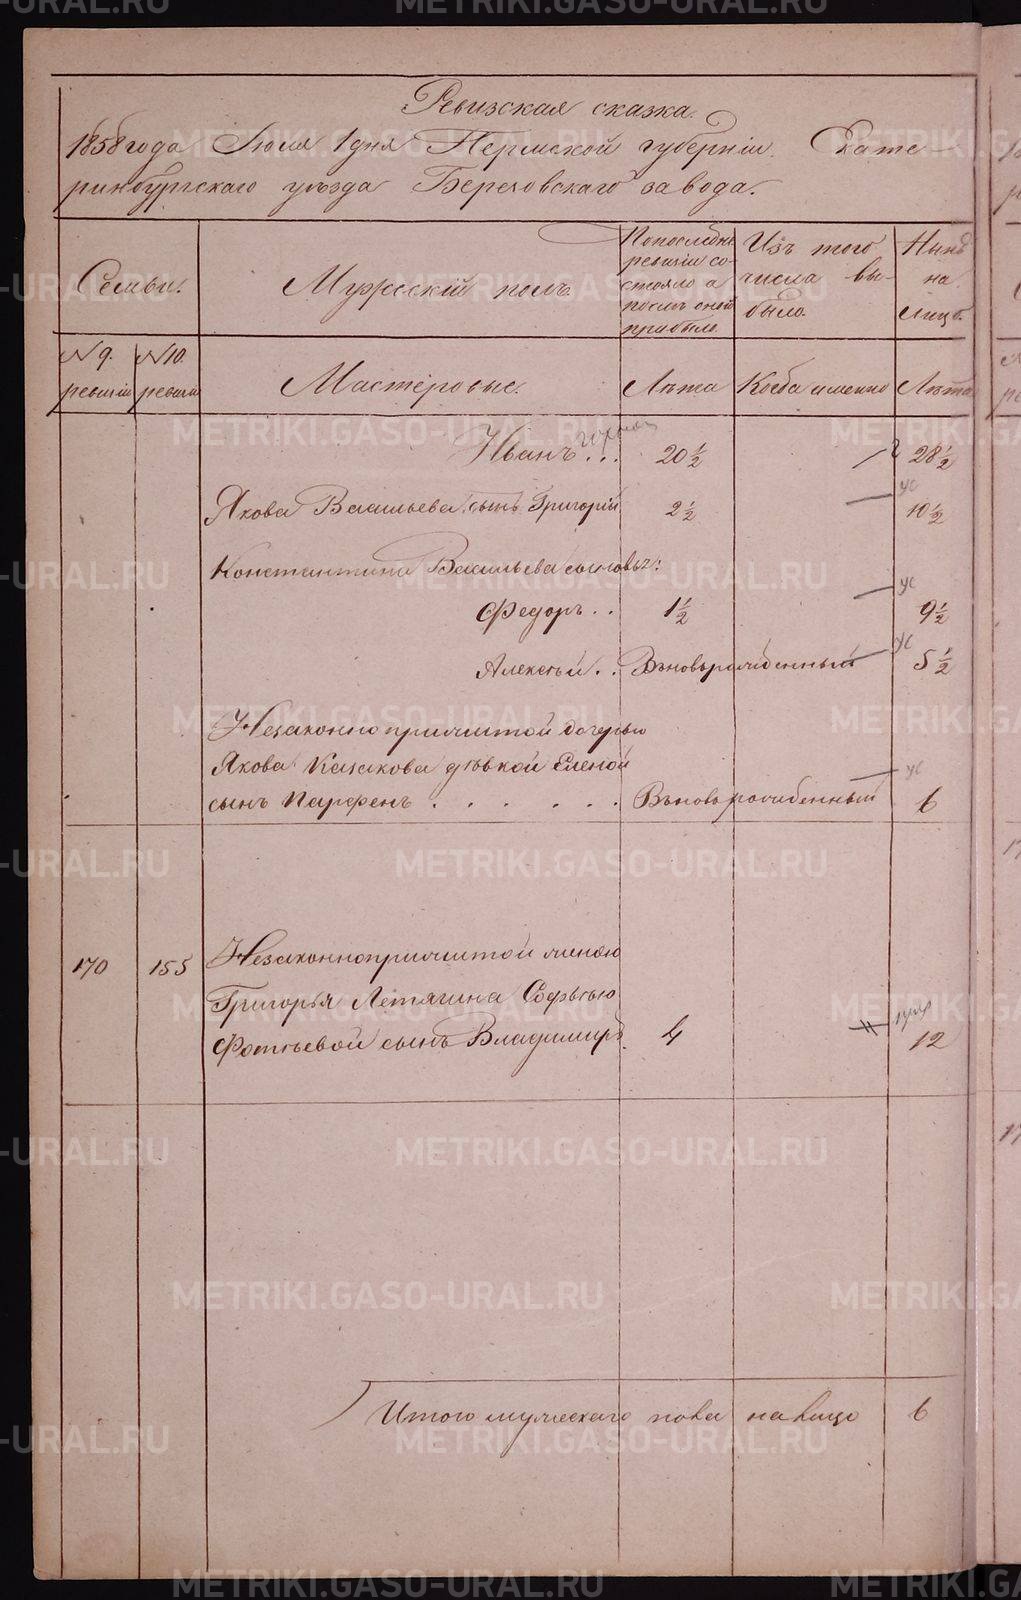 Ревизская сказка.
1858 года Іюля 1 дня Пермской губерніи. Екате-
ринбургскаго уѣзда Березовскаго завода.
Семьи.
Мужескій полъ.
По последн.
ревизіи со-
стояло а
послѣ оной
прибыло.
Изъ того
числа вы-
было.
Нынѣ
на
лицо.
N 9.
ревизіи
N 10.
ревизіи
Мастеровые.
Лѣта
Когда именно
Лѣта
Иванъ . . . 20 1/2 28 1/2
Якова Васильева сынъ Григорій 2 1/2 10 1/2
Константина Васильева сыновья:
Федоръ . . 1 1/2 9 1/2
Алексѣй . . Вновьрожденный 5 1/2
Незаконно прижитой дочерью
Якова Казакова дѣвкой Еленой
сынъ Парфенъ . . . . . . Вновьрожденный 6
170 155 Незаконноприжитой женою
Григорья Летягина Софьею
Фотіевой сынъ Владиміръ 4 12
Итого мужескаго пола на лицо 6
METRIKI.GASO-URAL.RU